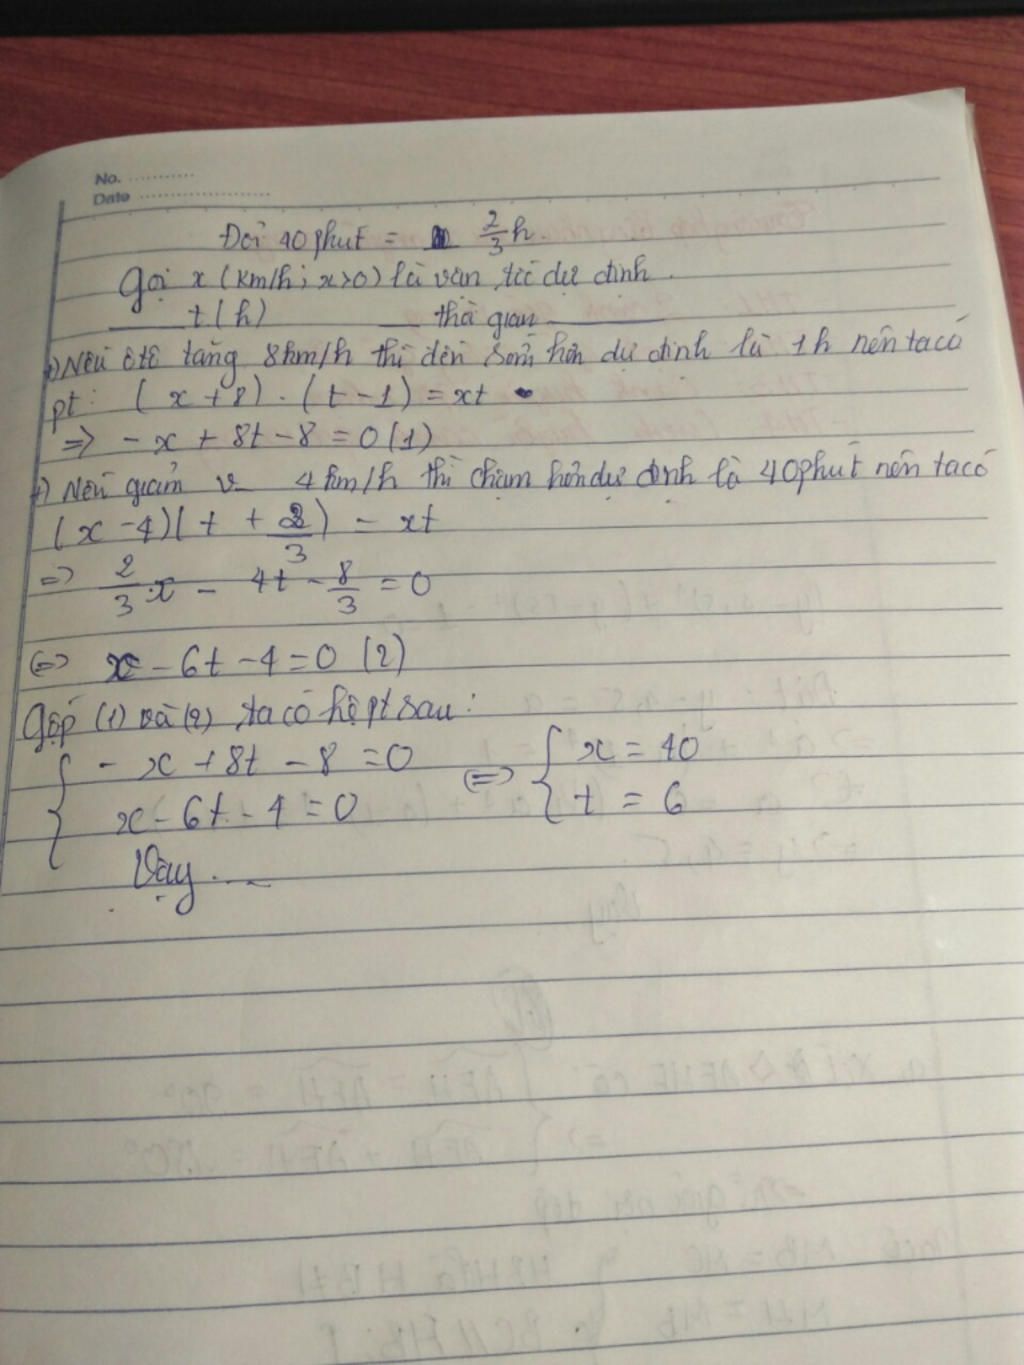 No. ...........
Date ......................
Đổi 40 phút = 2/3 h.
Gọi x (km/h; x>0) là vận tốc dự định.
___ t (h) ___ thời gian ___
+) Nếu ôtô tăng 8km/h thì đến sớm hơn dự định là 1h nên ta có
pt: (x+8).(t-1)=xt
=> -x + 8t - 8 = 0 (1)
+) Nếu giảm v 4km/h thì chậm hơn dự định là 40phút nên ta có
(x-4)(t + 2/3) = xt
=> 2/3 x - 4t - 8/3 = 0
<=> x - 6t - 4 = 0 (2)
Gộp (1) và (2) ta có hệ pt sau:
{ - x + 8t - 8 = 0 <=> { x = 40
x - 6t - 4 = 0 t = 6
Vậy ...